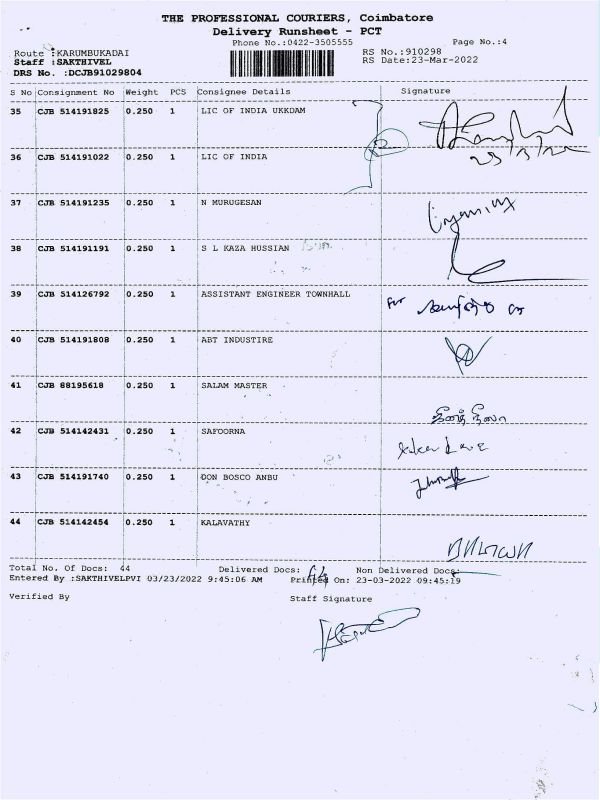 THE PROFESSIONAL COURIERS, Coimbatore
Delivery Runsheet - PCT
Phone No.:0422-3505555 Page No.:4
Route :KARUMBUKADAI RS No.:910298
Staff :SAKTHIVEL RS Date:23-Mar-2022
DRS No. :DCJB91029804
S No Consignment No Weight PCS Consignee Details Signature
35 CJB 514191825 0.250 1 LIC OF INDIA UKKDAM
36 CJB 514191022 0.250 1 LIC OF INDIA 23/3/22
37 CJB 514191235 0.250 1 N MURUGESAN
38 CJB 514191191 0.250 1 S L KAZA HUSSIAN
39 CJB 514126792 0.250 1 ASSISTANT ENGINEER TOWNHALL
For
40 CJB 514191808 0.250 1 ABT INDUSTIRE
41 CJB 88195618 0.250 1 SALAM MASTER
42 CJB 514142431 0.250 1 SAFOORNA
43 CJB 514191740 0.250 1 DON BOSCO ANBU
44 CJB 514142454 0.250 1 KALAVATHY
Total No. Of Docs: 44 Delivered Docs: 44 Non Delivered Docs:
Entered By :SAKTHIVELPVI 03/23/2022 9:45:06 AM Printed On: 23-03-2022 09:45:19
Verified By Staff Signature